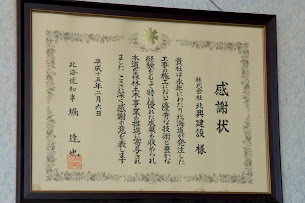 感謝状
株式会社 北興建設 様
貴社は永年にわたり北海道が発注した
工事の施工において優秀な技術と豊かな
経験をもって特に優れた成果を収められ
本道の森林土木事業の推進に寄与され
ました ここに深く感謝の意を表します
平成十五年二月六日
北海道知事 堀 達也